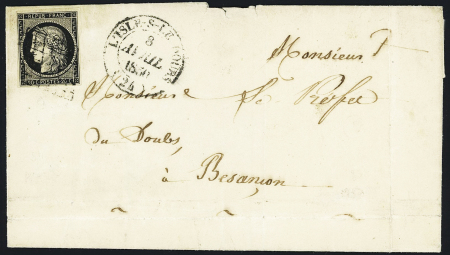 REPUB. FRANC.
20 C. POSTES 20 C.
L'ISLE-S-LE-DOUBS
8
AVRIL
1850
(24)
Monsieur
Monsieur le Préfet
du Doubs,
à Besançon